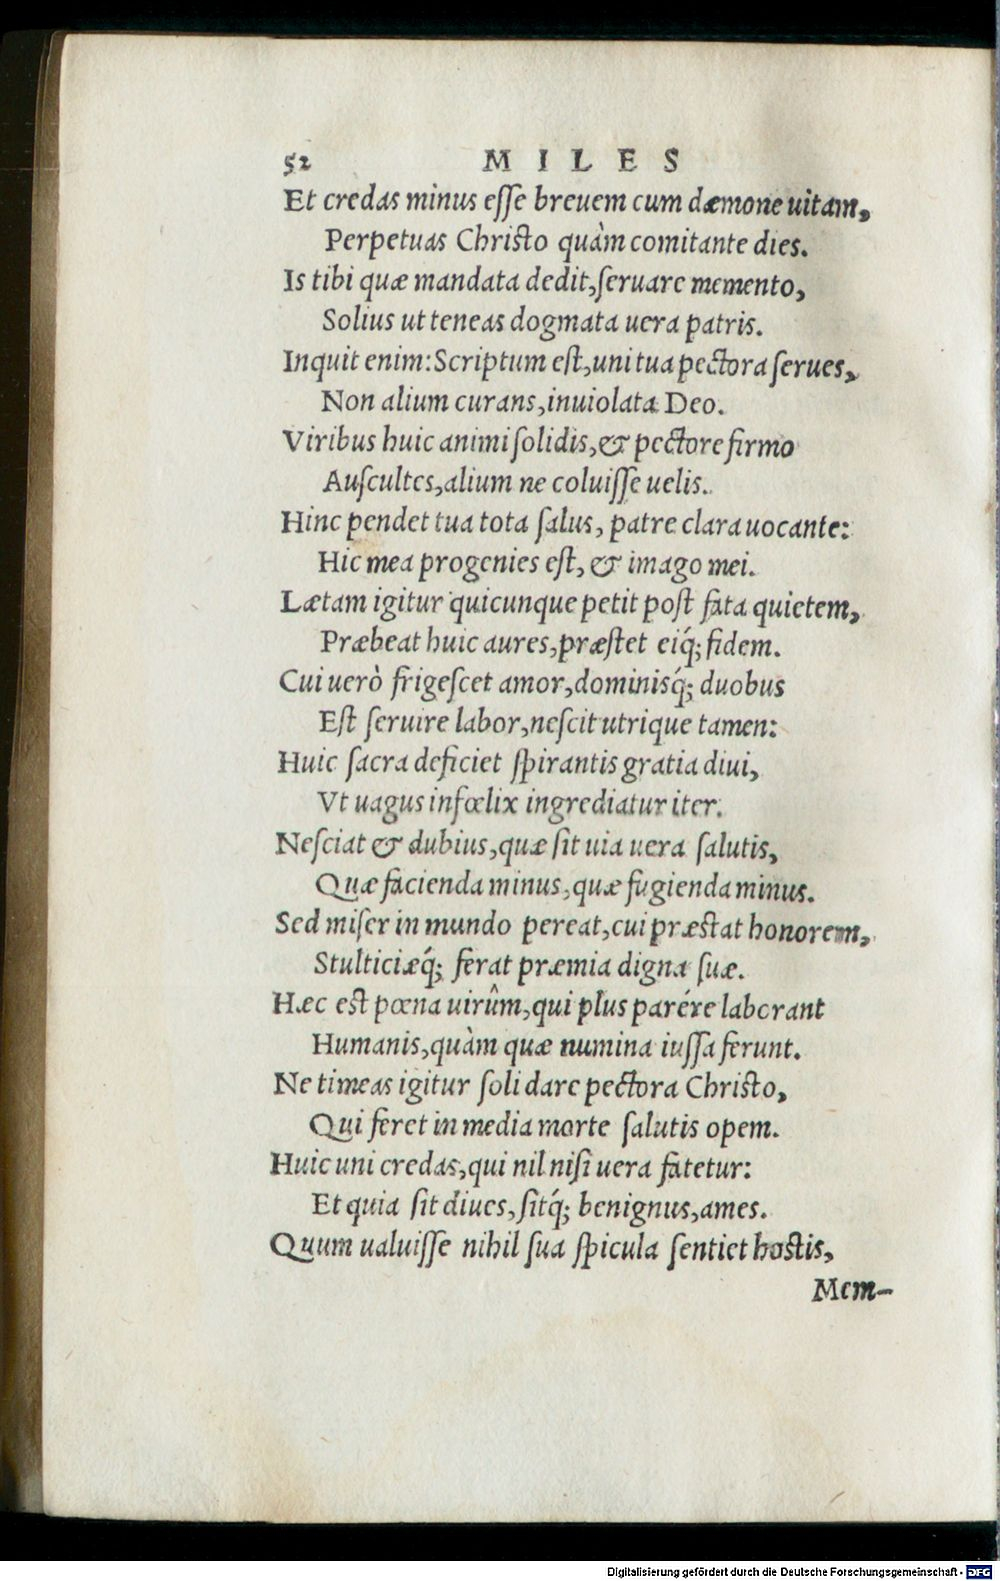 52 MILES
Et credas minus eſſe breuem cum dæmone uitam,
Perpetuas Chriſto quàm comitante dies.
Is tibi quæ mandata dedit, ſeruare memento,
Solius ut teneas dogmata uera patris.
Inquit enim: Scriptum eſt, uni tua pectora ſerues,
Non alium curans, inuiolata Deo.
Viribus huic animi ſolidis, & pectore firmo
Auſcultes, alium ne coluiſſe uelis.
Hinc pendet tua tota ſalus, patre clara uocante:
Hic mea progenies eſt, & imago mei.
Lætam igitur quicunque petit poſt fata quietem,
Præbeat huic aures, præſtet eiq́; fidem.
Cui uerò frigeſcet amor, dominisq́; duobus
Eſt ſeruire labor, neſcit utrique tamen:
Huic ſacra deficiet ſpirantis gratia diui,
Vt uagus infœlix ingrediatur iter.
Neſciat & dubius, quæ ſit uia uera ſalutis,
Quæ facienda minus, quæ fugienda minus.
Sed miſer in mundo pereat, cui præſtat honorem,
Stulticiæq́; ferat præmia digna ſuæ.
Hæc eſt pœna uirûm, qui plus parére laborant
Humanis, quàm quæ numina iuſſa ferunt.
Ne timeas igitur ſoli dare pectora Chriſto,
Qui feret in media morte ſalutis opem.
Huic uni credas, qui nil niſi uera fatetur:
Et quia ſit diues, ſitq́; benignus, ames.
Quum ualuiſſe nihil ſua ſpicula ſentiet hoſtis,
Mem-
Digitalisierung gefördert durch die Deutsche Forschungsgemeinschaft - DFG